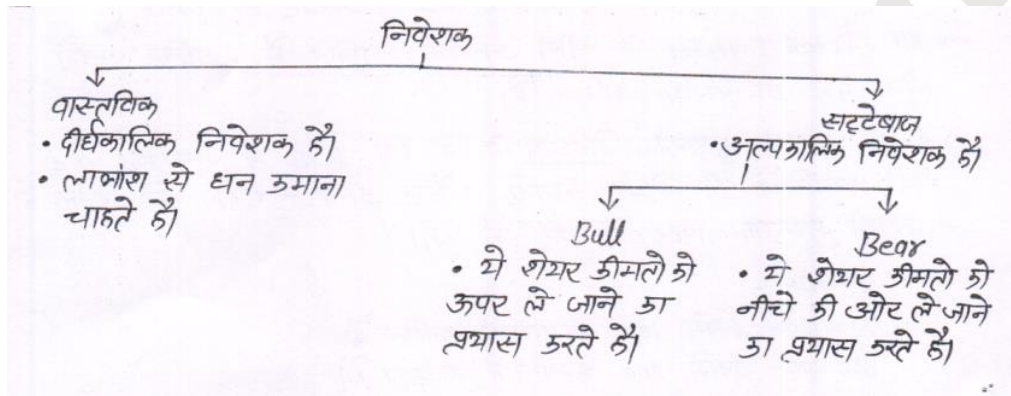 निवेशक
वास्तविक
• दीर्घकालिक निवेशक है।
• लाभांश से धन कमाना
चाहते है।
सट्टेबाज
• अल्पकालिक निवेशक है।
Bull
• ये शेयर कीमतो को
ऊपर ले जाने का
प्रयास करते है।
Bear
• ये शेयर कीमतो को
नीचे की ओर ले जाने
का प्रयास करते है।